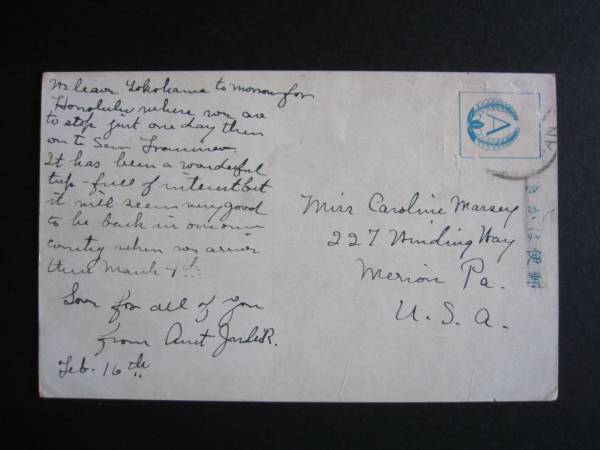 We leave Yokohama tomorrow for
Honolulu where we are
to stop just one day then
on to San Francisco.
It has been a wonderful
trip - full of interest but
it will seem very good
to be back in our own
country when we arrive
there March 4th.
Love for all of you
from Aunt
Feb. 16th
A
Miss Caroline Massey
227 Winding Way
Merion Pa.
U. S. A.
きがは便郵